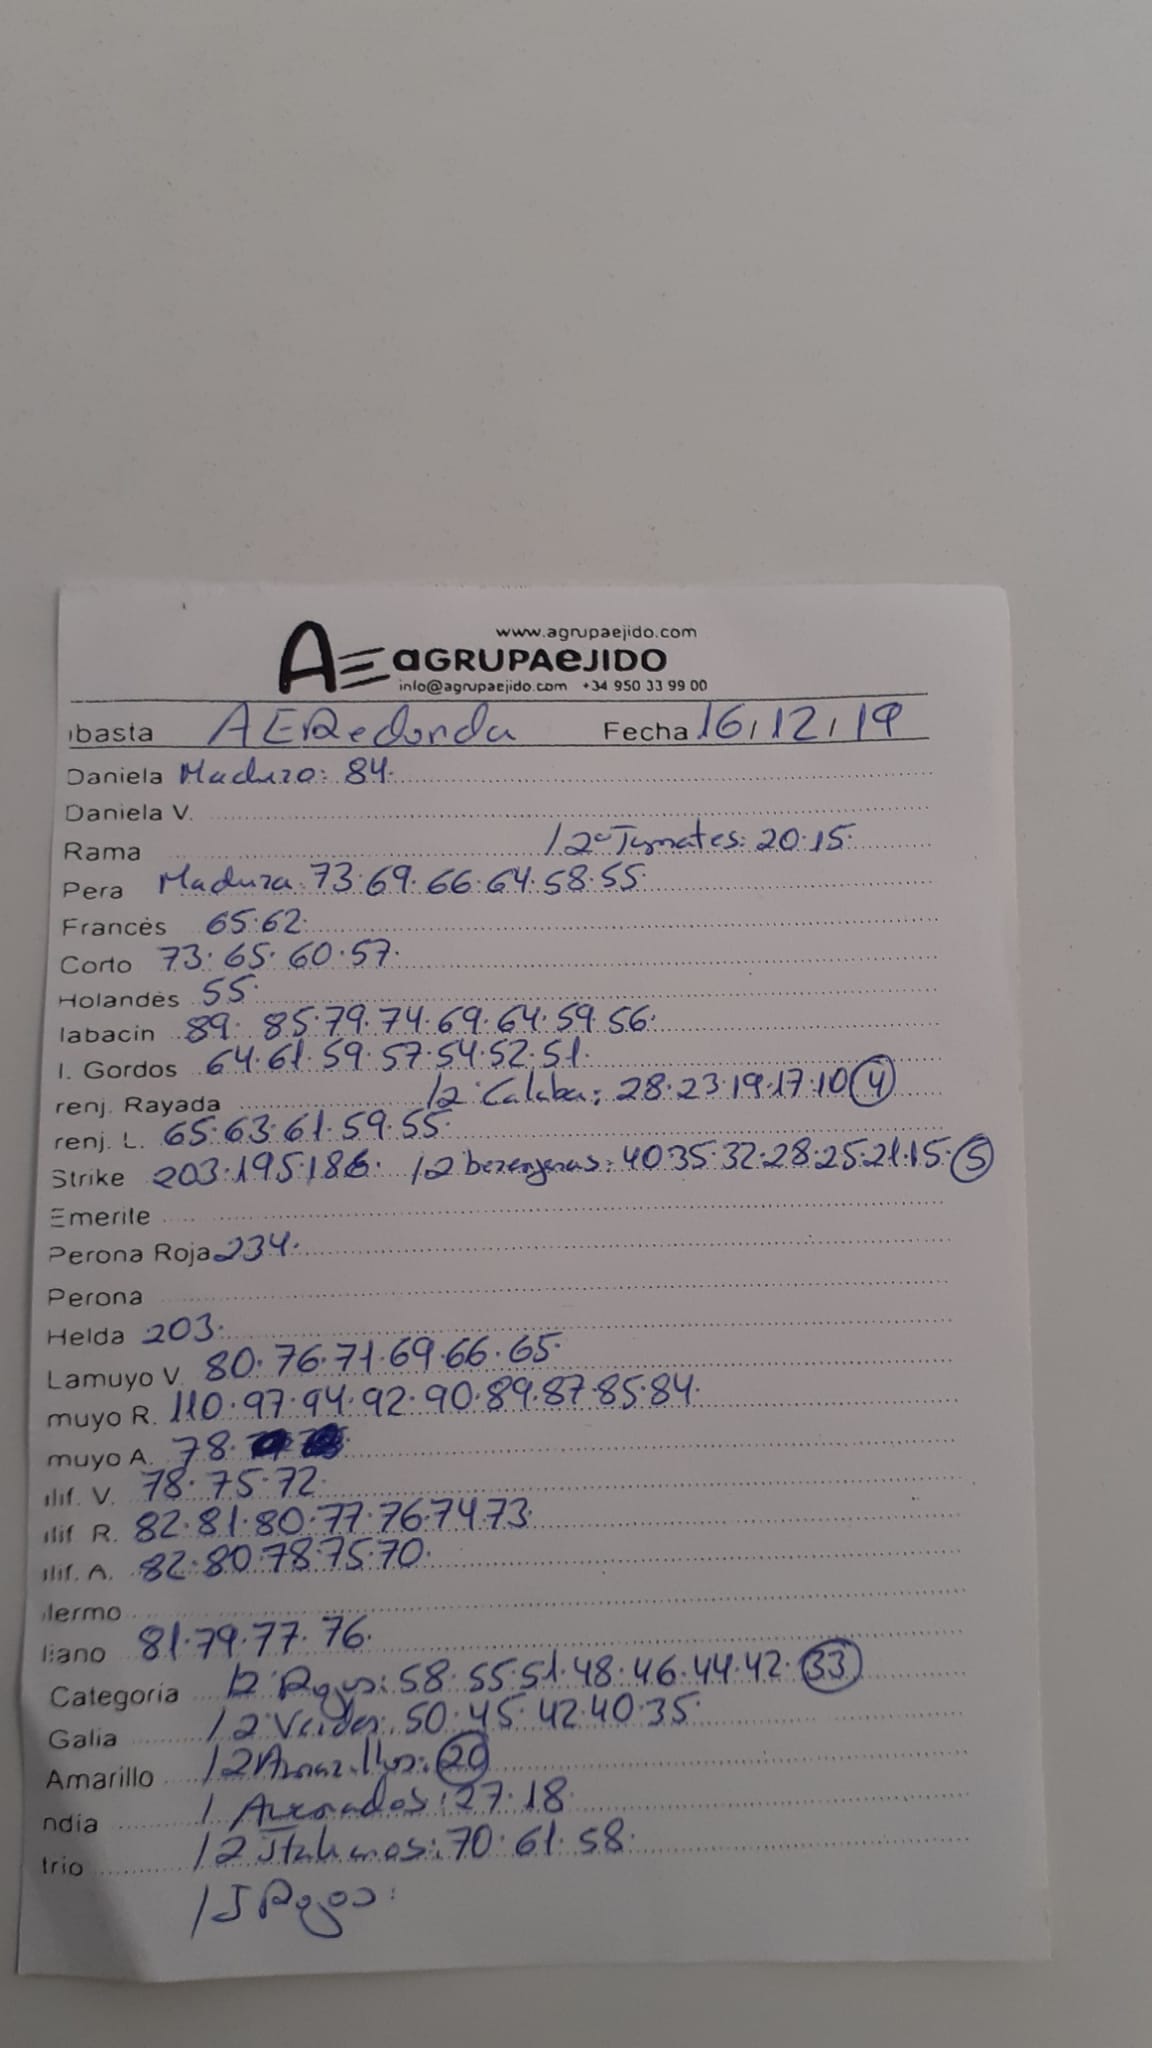 www.agrupaejido.com
AE aGRUPAeJIDO
info@agrupaejido.com +34 950 33 99 00
ubasta AERedonda Fecha 16/12/19
Daniela Maduro: 84.
Daniela V.
Rama / 2ª Tomates: 20.15.
Pera Madura 73.69.66.64.58.55.
Francés 65.62.
Corto 73.65.60.57.
Holandés 55.
labacin 89. 85.79.74.69.64.59.56.
l. Gordos 64.61.59.57.54.52.51.
renj. Rayada /2ª Calaba: 28.23.19.17.10 4
renj. L. 65.63.61.59.55.
Strike 203.195.186. /2 berenjenas: 40.35.32.28.25.21.15. 5
Emerite
Perona Roja 234.
Perona
Helda 203.
Lamuyo V. 80.76.71.69.66.65.
muyo R. 110.97.94.92.90.89.87.85.84.
muyo A. 78.
alif. V. 78.75.72.
alif R. 82.81.80.77.76.74.73.
alif. A. 82.80.78.75.70.
lermo
liano 81.79.77.76.
Categoria /2ª Rojos: 58.55.51.48.46.44.42. 33
Galia /2 Verdes: 50.45.42.40.35.
Amarillo /2 Amarillos: 20
ndia / Asurados: 27.18.
trio /2 Italianos: 70.61.58.
/ J Rojos: